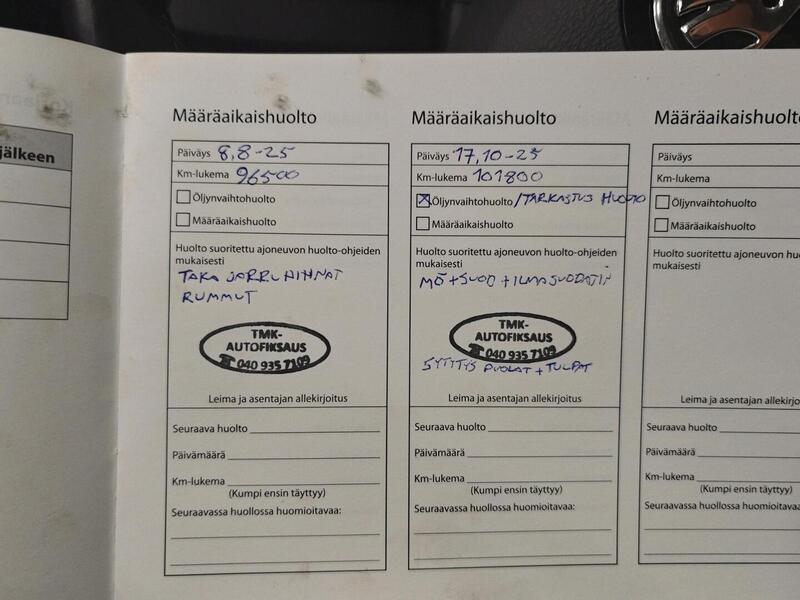 jälkeen
Määräaikaishuolto
Päiväys 8,8-25
Km-lukema 96500
Öljynvaihtohuolto
Määräaikaishuolto
Huolto suoritettu ajoneuvon huolto-ohjeiden
mukaisesti
TAKA JARRUHIHNAT
RUMMUT
TMK-
AUTOFIKSAUS
☎ 040 935 7109
Leima ja asentajan allekirjoitus
Seuraava huolto
Päivämäärä
Km-lukema
(Kumpi ensin täyttyy)
Seuraavassa huollossa huomioitavaa:
Määräaikaishuolto
Päiväys 17,10-25
Km-lukema 101800
Öljynvaihtohuolto /TARKASTUS HUOLTO
Määräaikaishuolto
Huolto suoritettu ajoneuvon huolto-ohjeiden
mukaisesti
MÖ+SUOD+ILMASUODATIN
TMK-
AUTOFIKSAUS
☎ 040 935 7109
SYTYTYS PUOLAT + TULPAT
Leima ja asentajan allekirjoitus
Seuraava huolto
Päivämäärä
Km-lukema
(Kumpi ensin täyttyy)
Seuraavassa huollossa huomioitavaa:
Määräaikaishuolto
Päiväys
Km-lukema
Öljynvaihtohuolto
Määräaikaishuolto
Huolto suoritettu ajoneuvon huo
mukaisesti
Leima ja asentajan allekirjo
Seuraava huolto
Päivämäärä
Km-lukema
(Kumpi ensin täyttyy)
Seuraavassa huollossa huomioitavaa: